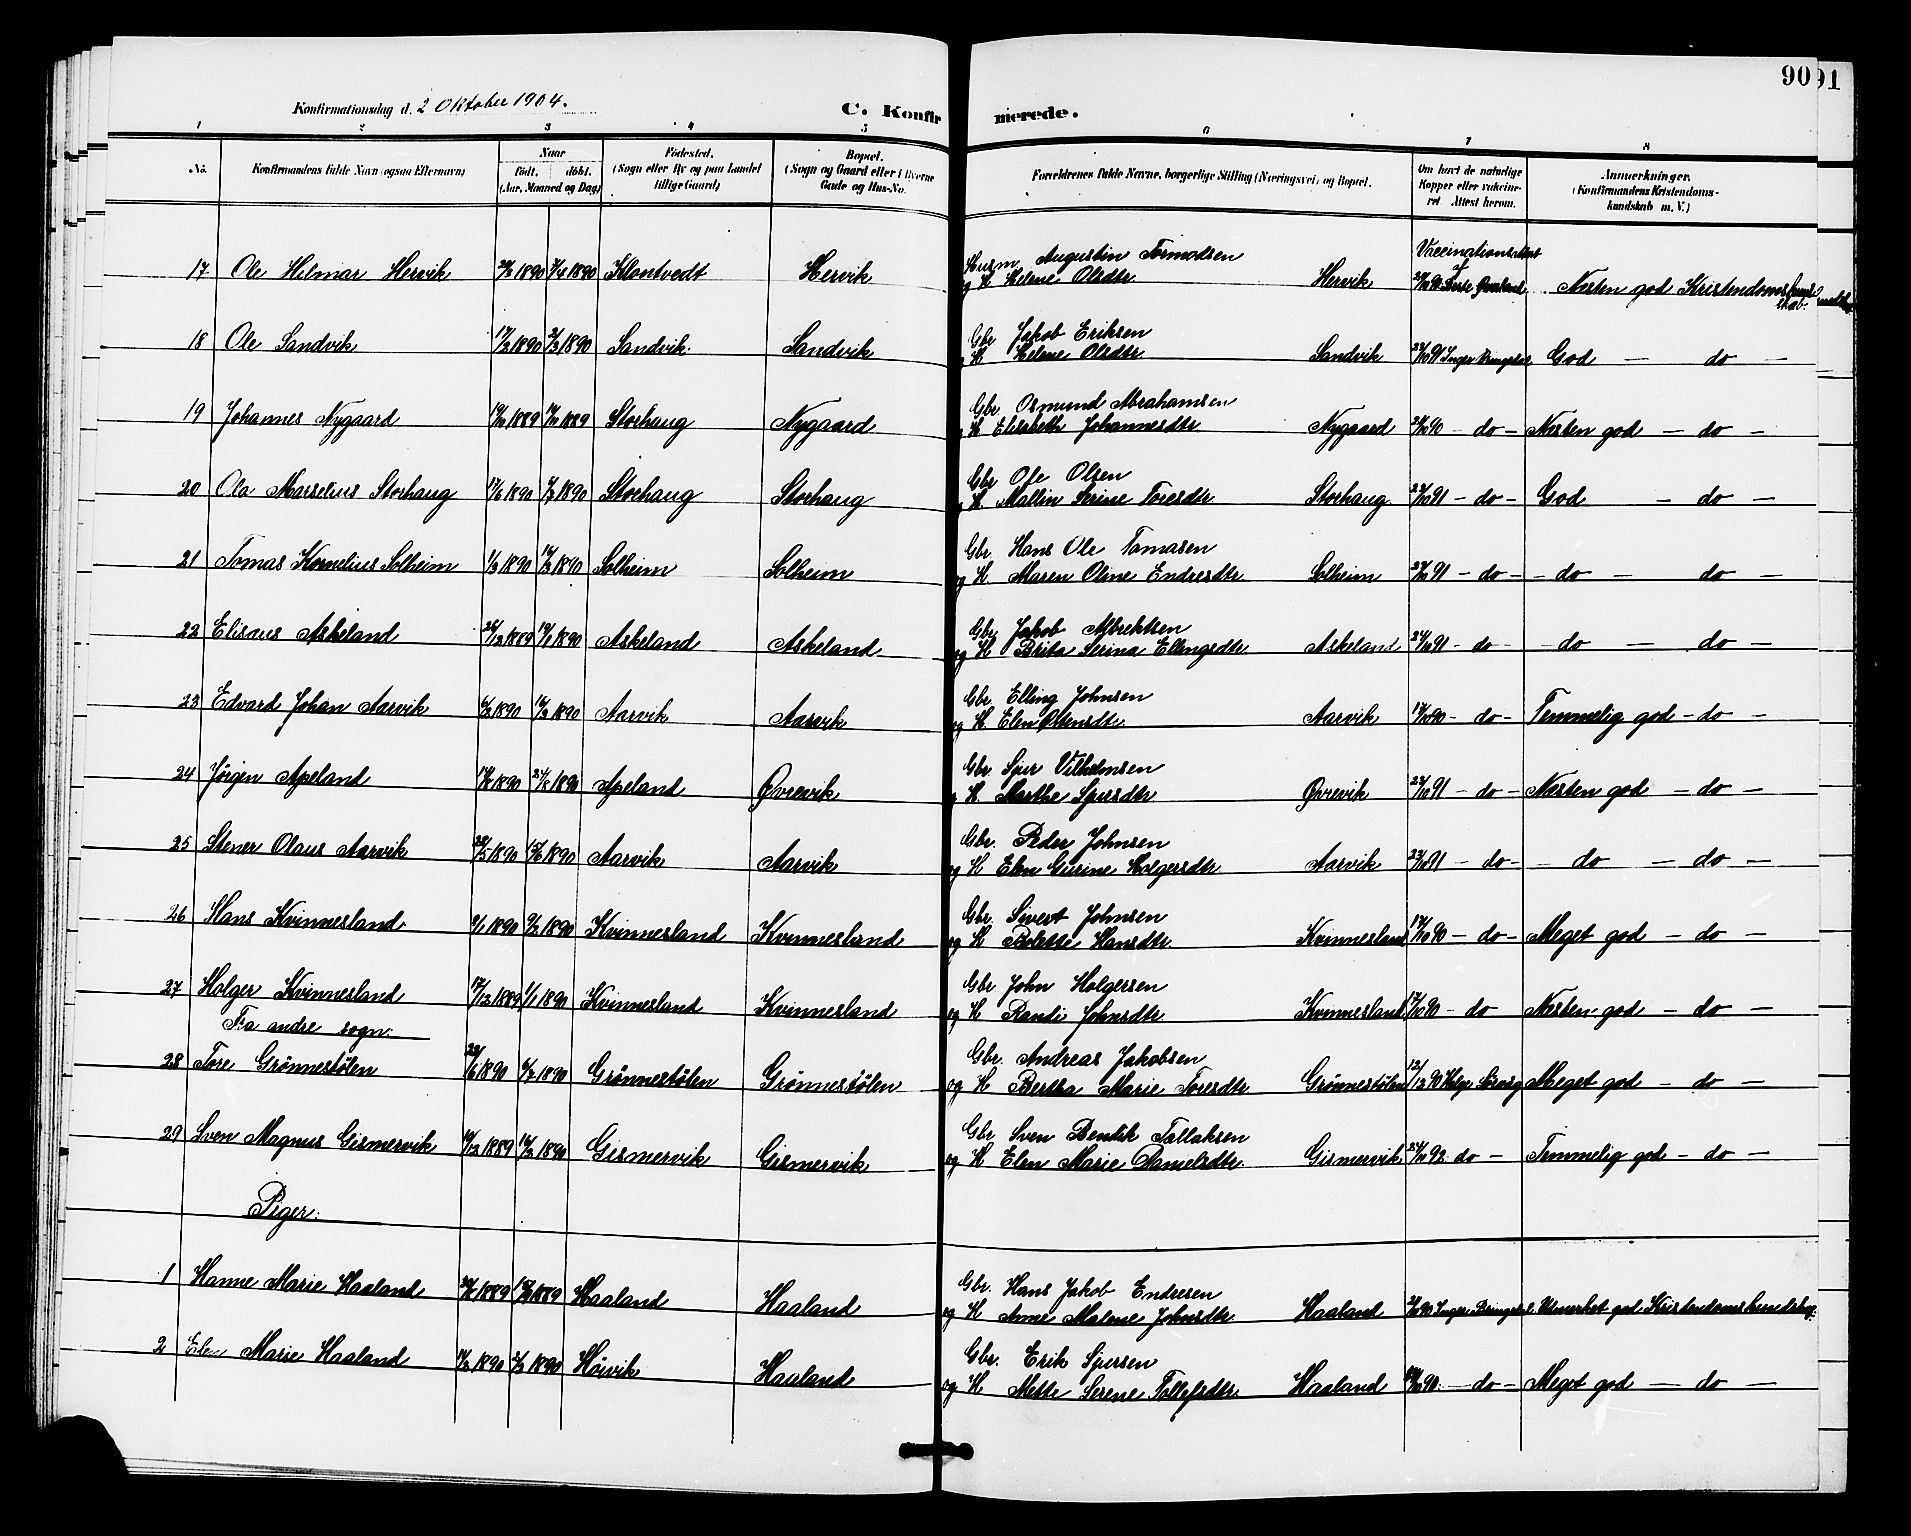 90
91
Konfirmationsdag d. 2 Oktober 1904.
C. Konfirmerede.
1 2 3 4 5 6 7 8
No. Konfirmandens fulde Navn (ogsaa Efternavn) Naar født. døbt. (Aar, Maaned og Dag) Fødested. (Sogn eller By og paa Landet tillige Gaard) Bopæl. (Sogn og Gaard eller i Byerne Gade og Hus-No. Forældrenes fulde Navne, borgerlige Stilling (Næringsvei) og Bopæl. Om havt de naturlige Kopper eller vaccineret Attest herom. Anmærkninger. (Konfirmandens Kristendomskundskab m. V.)
17 Ole Hilmar Hervik 1890 1890 Hervik Husm. Augustin Tormodsen
og H. Helene Olsdtr Hervik Vaccinationsattest Næsten god Kristendomskundskab
18 Ole Sandvik 17/2 1890 2/3 1890 Sandvik Sandvik Gbr Jakob Eriksen
og H Helene Olsdtr Sandvik 91 Inger Bringedal God — do —
19 Johannes Nygaard 1889 1889 Storhaug Nygaard Gbr Osmund Abrahamsen
og H Elisabeth Johannesdtr Nygaard 90 — do — Næsten god — do —
20 Ola Marselius Storhaug 17/6 1890 1890 Storhaug Storhaug Gbr Ole Olsen
og H. Mallin Serine Toresdtr Storhaug 91 — do — God — do —
21 Tomas Kornelius Solheim 1/3 1890 16/3 1890 Solheim Solheim Gbr Hans Ole Tomasen
og H Maren Oline Endresdtr Solheim 91 — do — — do — do —
22 Elisæus Askeland 1889 19/1 1890 Askeland Askeland Gbr Jakob Albrektsen
og H Brita Serina Ellingsdtr Askeland 91 — do — — do — do —
23 Edvard Johan Aarvik 1890 1890 Aarvik Aarvik Gbr Elling Johnsen
og H Elen Aarvik 90 — do — Temmelig god — do —
24 Jørgen Apeland 1890 1890 Apeland Øvrevik Gbr. Sjur Vilhelmsen
og H. Marthe Sjursdtr Øvrevik 91 — do — Næsten god — do —
25 Stener Olaus Aarvik 1890 15/6 1890 Aarvik Aarvik Gbr. Peder Johnsen
og H Elen Gurine Holgersdtr Aarvik 91 — do — — do — do —
26 Hans Kvinnesland 9/1 1890 9/2 1890 Kvinnesland Kvinnesland Gbr. Sivert Johnsen
og H Bolette Hansdtr Kvinnesland 17/10 90 — do — Meget god — do —
27 Holger Kvinnesland 17/12 1889 1/1 1890 Kvinnesland Kvinnesland Gbr John Holgersen
og H Randi Johnsdtr Kvinnesland 17/10 90 — do Næsten god — do —
Fra andre sogn:
28 Tore Grønnestølen 22/6 1890 6/7 1890 Grønnestølen Grønnestølen Gbr. Andreas Jakobsen
og H Bertha Marie Toresdtr Grønnestølen 12/12 90 Meget god — do —
29 Sven Magnus Gismervik 1889 16/2 1890 Gismervik Gismervik Gbr Sven Bentik Tallaksen
og H Elen Marie Danielsdtr Gismervik 92 do — Temmelig god — do —
Piger:
1 Hanne Marie Haaland 1889 1889 Haaland Haaland Gbr. Hans Jakob Endresen
og H Anne Malene Johnsdtr Haaland 90 Inger Bringedal Udmerket god Kristendomskundskap:
2 Elen Marie Haaland 1890 2/3 1890 Høivik Haaland Gbr. Erik Sjursen
og H Mette Serene Tollefsdtr Haaland 90. — do — Meget god — do —